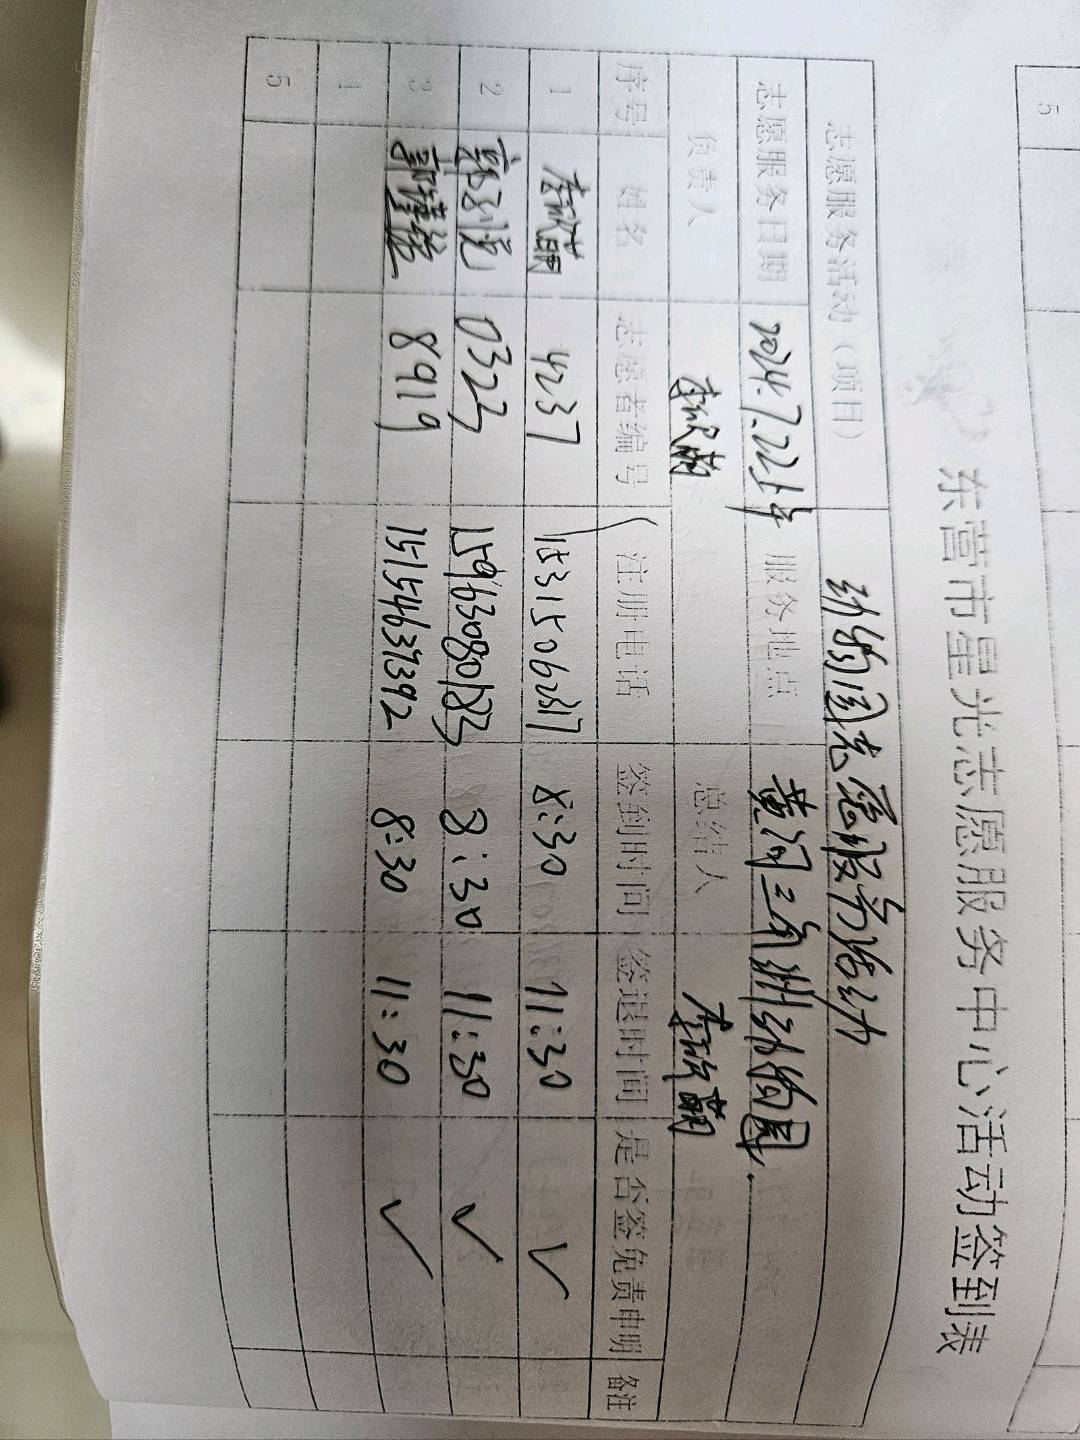 东营市星光志愿服务中心活动签到表
志愿服务活动（项目） 幼儿园志愿服务活动
志愿服务日期 2024.7.22上午 服务地点 黄河三角洲幼儿园.
负责人 李欣萌 总结人 李欣萌
序号 姓名 志愿者编号 注册电话 签到时间 签退时间 是否签免责申明 备注
1 李欣萌 4237 8:30 11:30 ✓
2 0323 15963080183 8:30 11:30 ✓
3 8919 15154637392 8:30 11:30 ✓
4
5
5